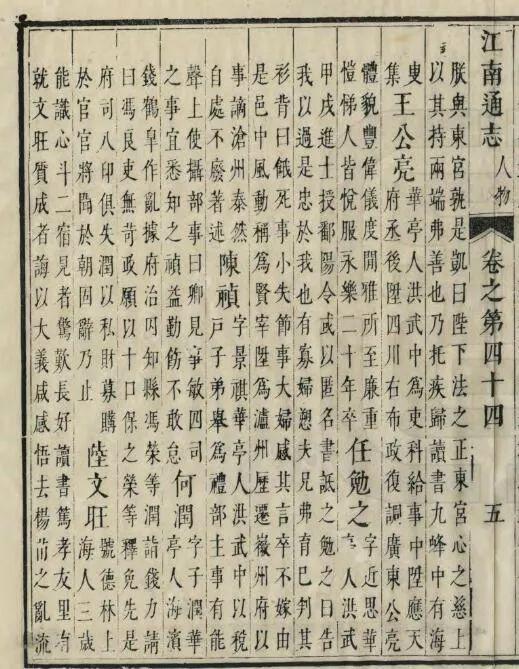 江南通志 人物 卷之第四十四 五
朕與東宮孰是凱曰陛下法之正東宮心之慈上
以其持兩端弗善也乃托疾歸讀書九峰中有海
叟集
王公亮
華亭人洪武中為吏科給事中陞應天
府丞後陞四川右布政復調廣東公亮
體貌豐偉儀度閒雅所至廉重
愷悌人皆悅服永樂二十年卒
任勉之
字近思華
亭人洪武
甲戌進士授鄱陽令或以匿名書詆之勉之曰告
我以過是忠於我也有寡婦愬夫兄弗育巳判其
衫背曰餓死事小失節事大婦感其言卒不嫁由
是邑中風動稱為賢宰陞為瀘州歷遷徽州府以
事謫滄州泰然
自處不廢著述
陳禎
字景祺華亭人洪武中以稅
戶子弟舉為禮部主事有能
聲上使攝部事曰卿見事敏四司
之事宜悉知之禎益勤飭不敢怠
何潤
字子潤華
亭人海濱
錢鶴臯作亂據府治囚知縣馮榮等潤詣錢力請
曰馮良吏無苛政願以十口保之榮等釋免先是
府司八印俱失潤以私財募購
於官官將聞於朝固辭乃止
陸文旺
號德林上
海人三歲
能識心斗二宿見者驚歎長好讀書篤孝友里有
就文旺質成者誨以大義咸感悟去楊苗之亂流